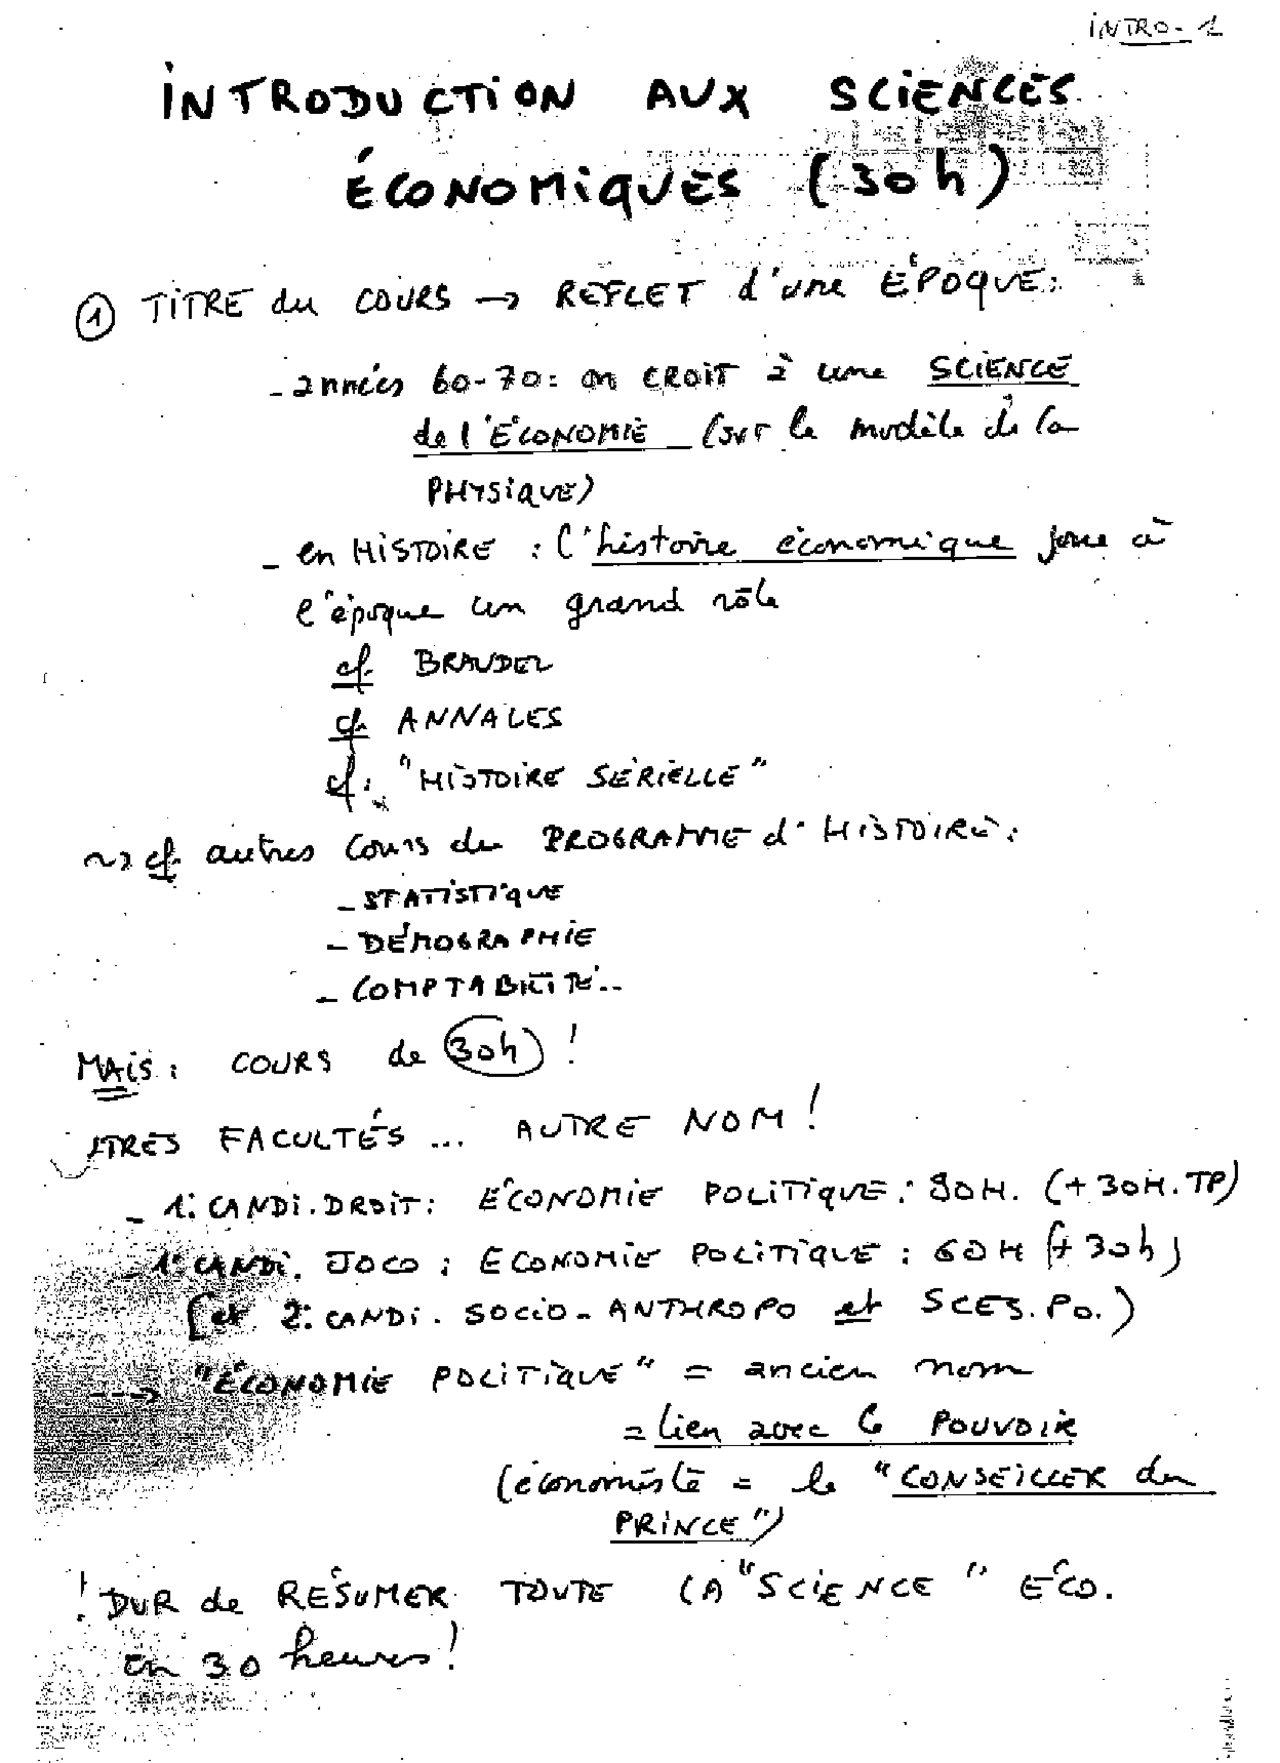 INTRO-1
INTRODUCTION AUX SCIENCES
ÉCONOMIQUES (30h)
① TITRE du COURS → REFLET d'une ÉPOQUE:
- années 60-70: on CROIT à une SCIENCE
de l'ÉCONOMIE (sur le modèle de la
PHYSIQUE)
- en HISTOIRE : l'histoire économique joue à
l'époque un grand rôle
cf. BRAUDEL
cf. ANNALES
cf. "HISTOIRE SÉRIELLE"
~> cf. autres cours du PROGRAMME d'HISTOIRE:
- STATISTIQUE
- DÉMOGRAPHIE
- COMPTABILITÉ..
MAIS: COURS de 30h !
FACULTÉS ... AUTRE NOM !
- 1: CANDI. DROIT: ÉCONOMIE POLITIQUE: H. (+30H.TP)
- 1: CANDI. : ECONOMIE POLITIQUE : 60H (+30h)
(et 2: CANDI. SOCIO-ANTHROPO et SCES.PO.)
---> "ÉCONOMIE POLITIQUE" = ancien nom
= lien avec le POUVOIR
(économiste = le "CONSEILLER du
PRINCE")
! DUR de RÉSUMER TOUTE LA "SCIENCE" ÉCO.
en 30 heures!